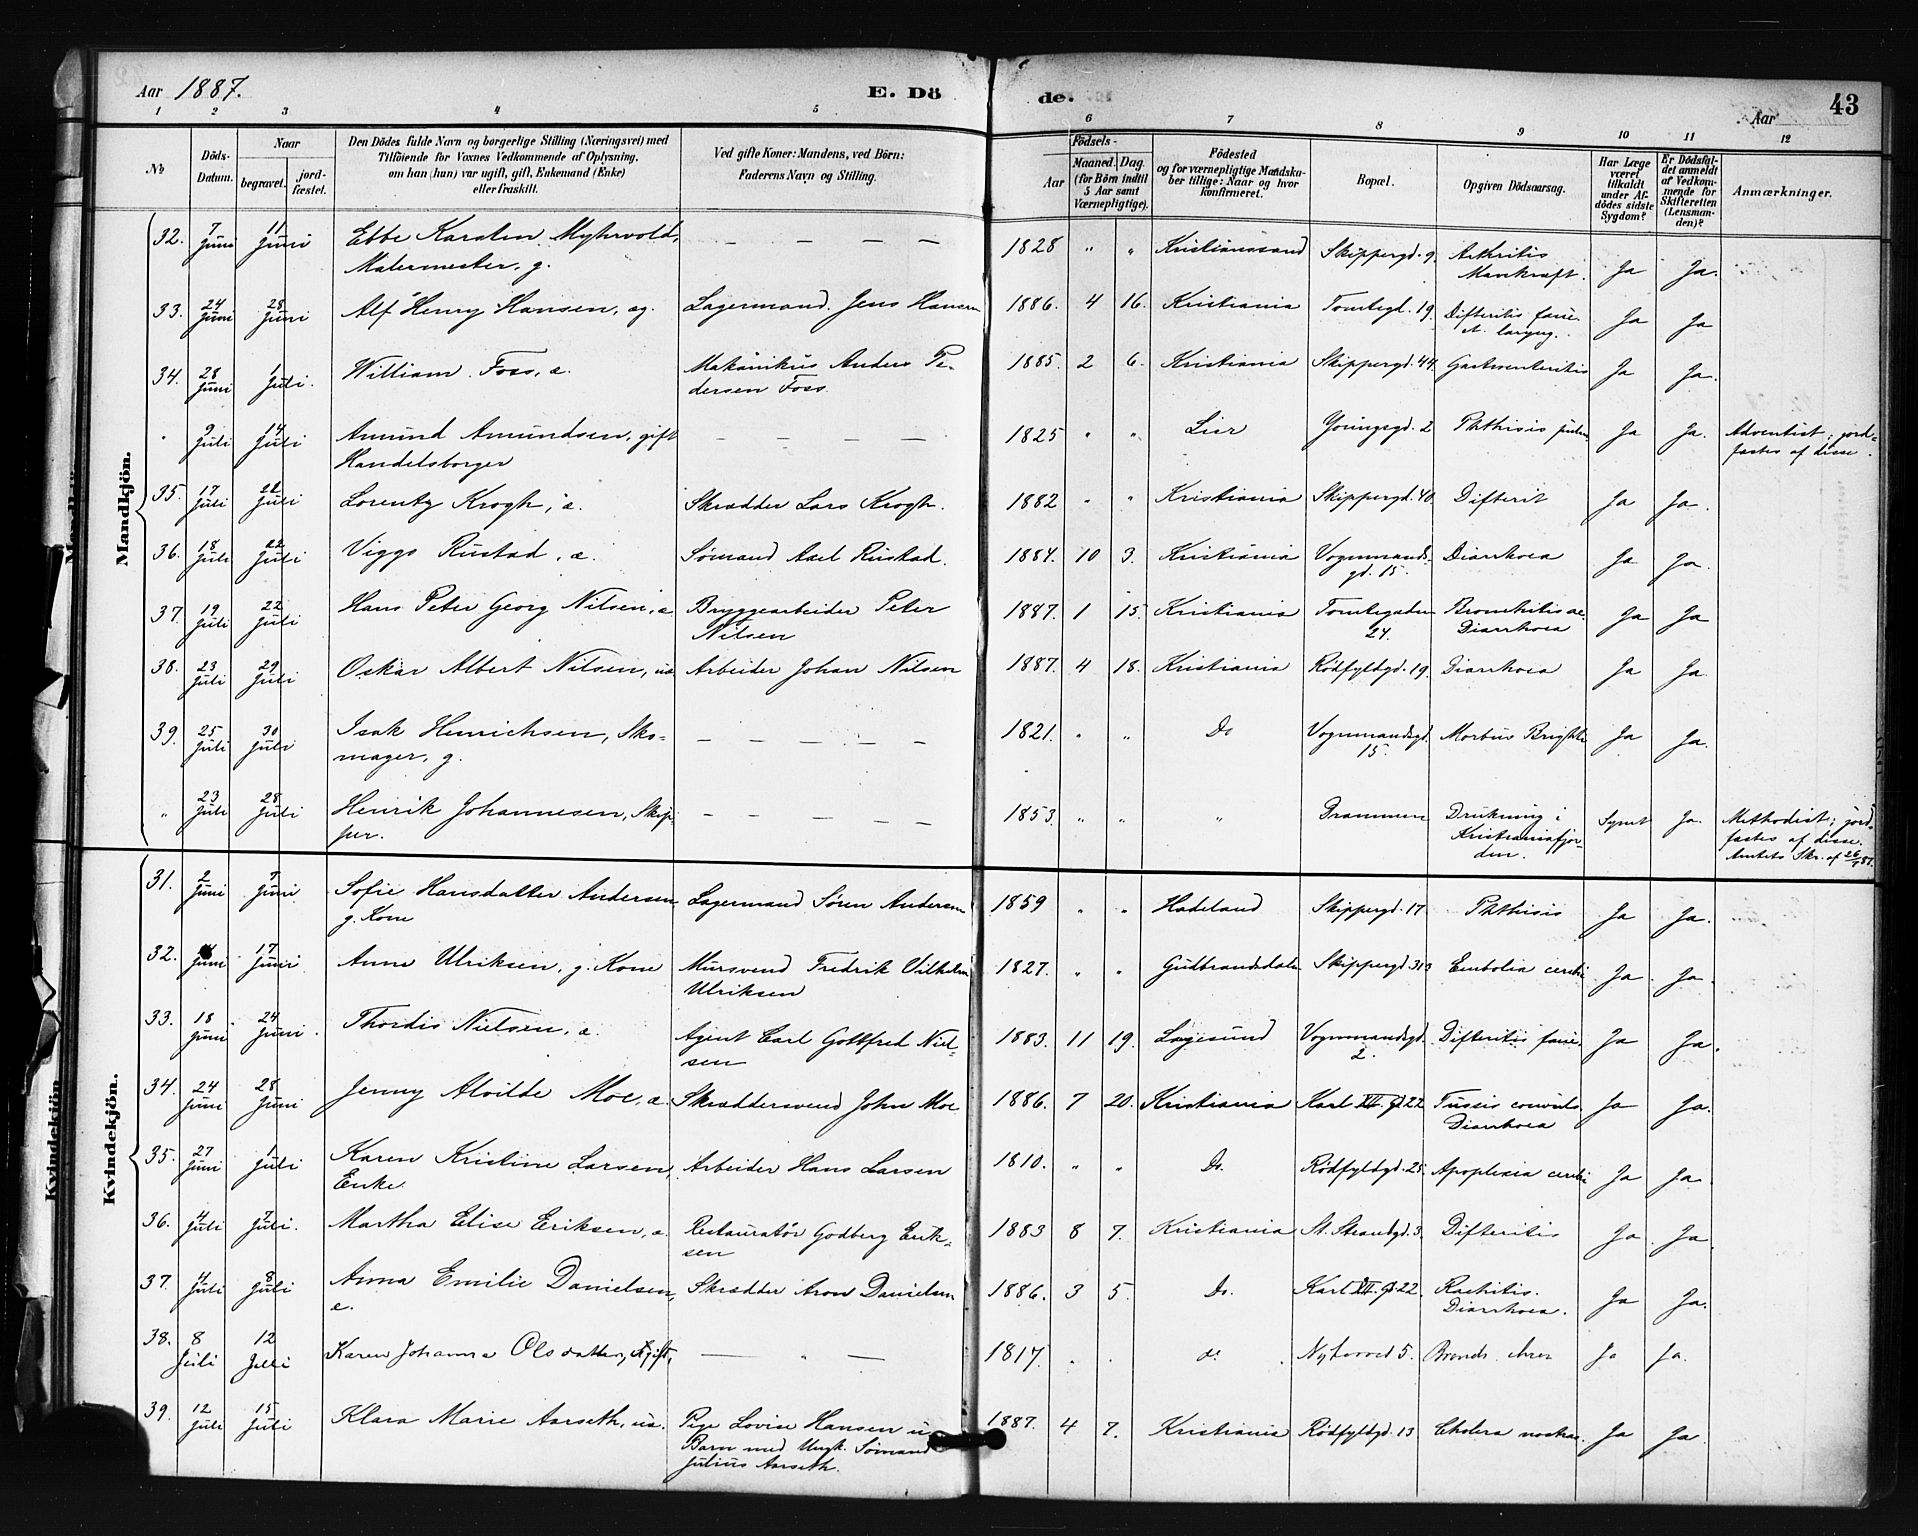 Aar 1887. E. Dö de. Aar 43
1 2 3 4 5 6 7 8 9 10 11 12
No Döds-Datum. Naar begravet. jordfæstet. Den Dödes fulde Navn og borgerlige Stilling (Næringsvei) med Tilföiende for Voxnes Vedkommende af Oplysning, om han (hun) var ugift, gift, Enkemand (Enke) eller fraskilt. Ved gifte Koner: Mandens, ved Börn: Faderens Navn og Stilling. Födsels- Aar Maaned. Dag. (for Börn indtil 5 Aar samt Værnepligtige). Födested og for værnepligtige Mandskaber tillige: Naar og hvor konfirmeret. Bopæl. Opgiven Dödsaarsag. Har Læge været tilkaldt under Afdödes sidste Sygdom? Er Dödsfaldet anmeldt af Vedkommende for Skifteretten (Lensmanden)? Anmærkninger.
Mandkjön.
32. 7 Juni 11 Juni Ebbe Karsten Myhrvold, Malermester, g. — — — — 1828 " " Kristianssand Skippergd. 9. Arthritis Ja Ja.
33. 24 Juni 28 Juni Alf Henry Hansen, æg. Lagermand Jens Hansen 1886. 4 16. Kristiania Tomtegd. 19. Difteritis Ja Ja
34. 28 Juni 1 Juli. William Foss, æ. Mekanikus Anders Pedersen Foss 1885. 2 6. Kristiania Skippergd. 44. Gastroenteritis Ja Ja.
" 9 Juli 14 Juli Amund Amundsen, gift Handelsborger — — — — 1825 " " Lier Youngsgd. 2 Phthisis Ja Ja. Adventist; jordfæstes af disse.
35. 17 Juli 22 Juli Lorentz Krogh, æ. Skrædder Lars Krogh. 1882 " " Kristiania Skippergd. 40. Difterit Ja Ja.
36. 18 Juli 22 Juli Viggo Rustad, æ. Sömand Axel Rustad. 1884. 10 3. Kristiania Vognmandsgd. 15. Diarrhoea Ja Ja.
37. 19 Juli 22 Juli Hans Peter Georg Nilsen, æ Bryggearbeider Peter Nilsen 1887. 1 15. Kristiania Tomtegaden 24. Bronchitis ac. Diarrhoea Ja Ja
38. 23 Juli 29 Juli Oskar Albert Nilsen, uæ Arbeider Johan Nilsen 1887. 4 18. Kristiania Rödfyldgd. 19. Diarrhoea Ja Ja
39. 25 Juli 30 Juli Isak Henrichsen, Skomager, g. — — — — — 1821. " " Do Vognmandsgd. 15. Morbus Brightii Ja Ja.
" 23 Juli 28 Juli Henrik Johannesen, Skipper. — — — — — 1853. " " " Drammen Drukning i Kristianiafjorden. Synet Ja. Methodist; jordfæstes af disse. Amtets Skr. af 26/7 87.
Kvindekjön.
31. 2 Juni 7 Juni Sofie Hansdatter Andersen g. Kone Lagermand Sören Andersen 1859 " " Hadeland Skippergd. 17 Phthisis Ja Ja.
32. Juni 17 Juni Anne Ulriksen, g. Kone Mursvend Fredrik Vilhelm Ulriksen 1827. " " Gudbrandsdalen Skippergd. Embolia cerebri Ja. Ja.
33. 18 Juni 24 Juni. Thordis Nielsen, æ. Agent Carl Gottfred Nielsen 1883. 11 19. Langesund Vognmandsgd. 2. Difteritis Ja Ja.
34. 24 Juni 28 Juni Jenny Alvilde Moe, æ. Skræddersvend John Moe 1886. 7 20. Kristiania Karl XII. gd 22 Tussis convuls. Diarrhoea Ja Ja.
35. 27 Juni 1 Juli Karen Kristine Larsen, Enke. Arbeider Hans Larsen 1810. " " Do. Rödfyldgd. 25. Apoplexia cerebri Ja Ja.
36. 4 Juli 7 Juli. Martha Elise Eriksen, æ. Restauratör Godberg Eriksen 1883 8 7. Kristiania St. Strandgd. 3. Difteritis Ja Ja.
37. 4 Juli 8 Juli Anna Emilie Danielsen, æ. Skrædder Aron Danielsen 1886. 3 5. Do. Karl XII. gd 22. Rachitis. Diarrhoea. Ja Ja.
38. 8 Juli 12 Juli Karen Johanne Olsdatter, — " — 1817. " " do. Nytorvet 5. Ja Ja.
39. 12 Juli 15 Juli Klara Marie Aarseth, uæ. Pige Lovise Hansen u. Barn med Ungk. Sömand Julius Aarseth. 1887. 4 7. Kristiania Rödfyldgd. 13 Cholera nostras. Ja Ja.